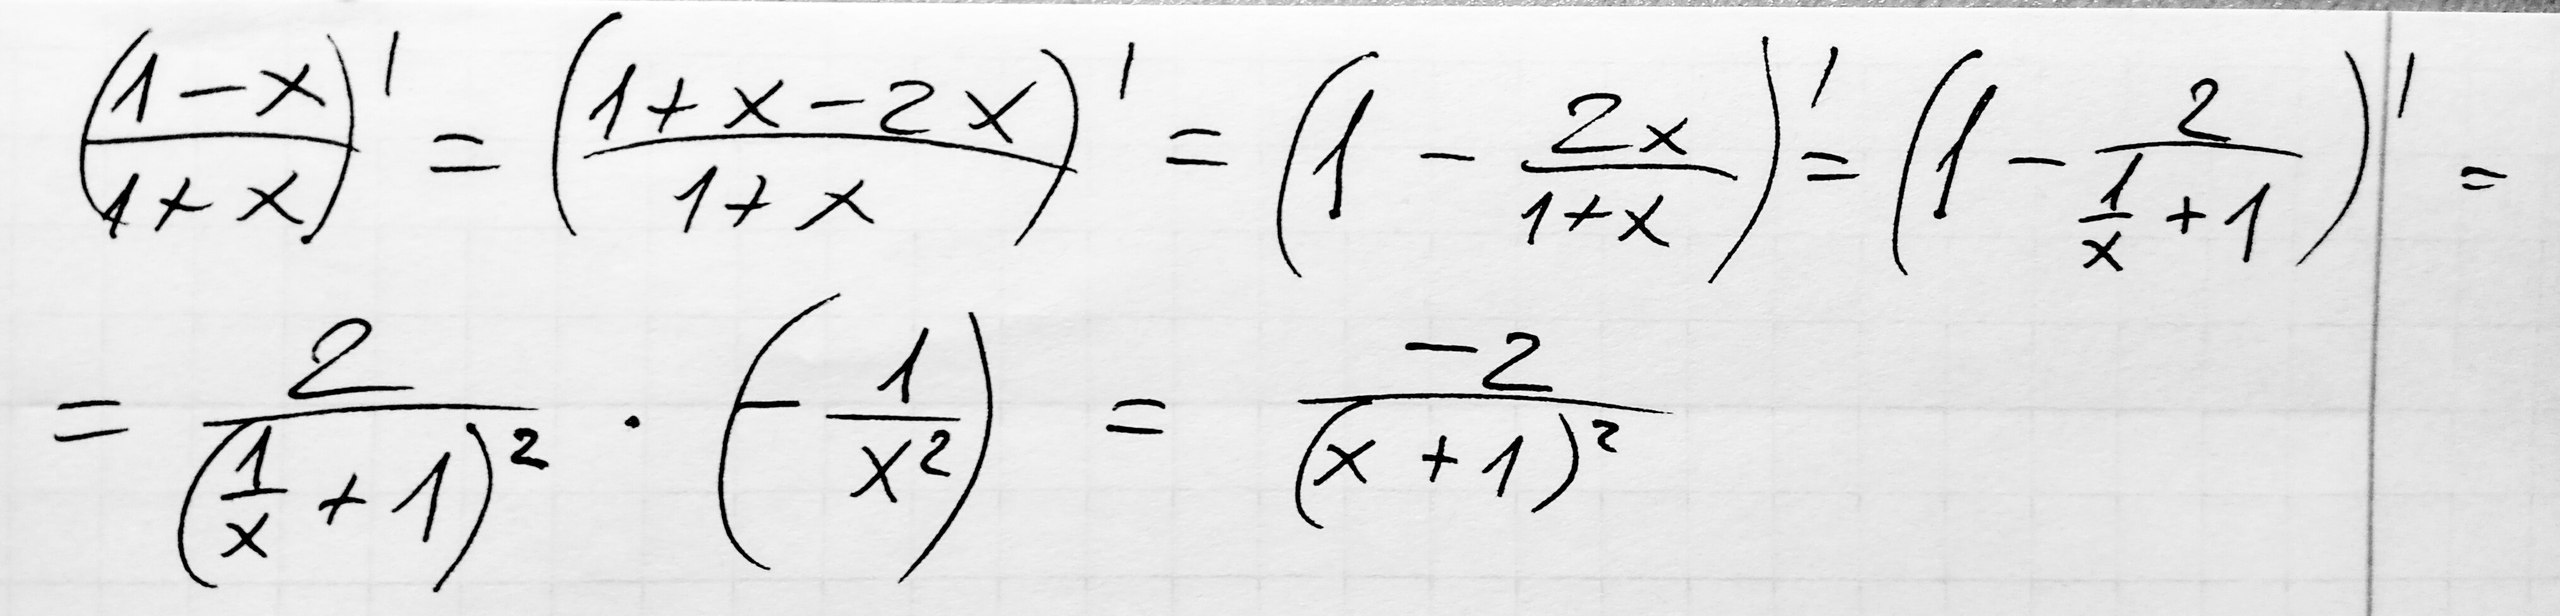 ((1-x)/(1+x))' = ((1+x-2x)/(1+x))' = (1 - (2x)/(1+x))' = (1 - 2/(1/x + 1))' =
= 2/(1/x + 1)² · (- 1/x²) = -2/(x+1)²